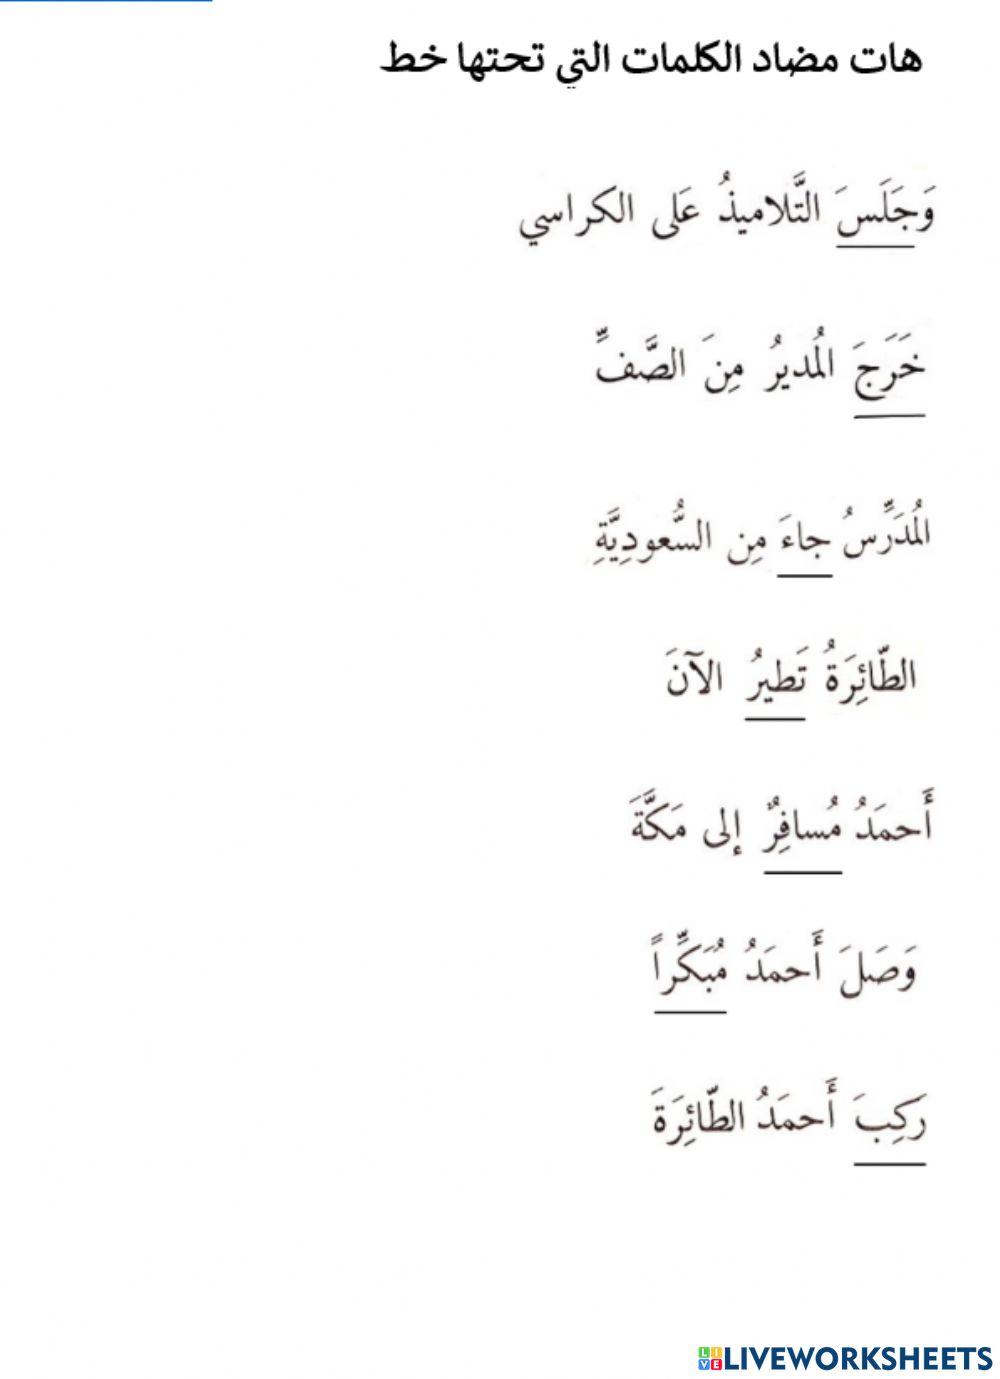 هات مضاد الكلمات التي تحتها خط
وَجَلَسَ التَّلاميذُ عَلى الكراسي
خَرَجَ المُديرُ مِنَ الصَّفِّ
المُدَرِّسُ جاءَ مِن السُّعودِيَّةِ
الطّائِرَةُ تَطيرُ الآنَ
أَحمَدُ مُسافِرٌ إلى مَكَّةَ
وَصَلَ أَحمَدُ مُبَكِّراً
رَكِبَ أَحمَدُ الطّائِرَةَ
LIVEWORKSHEETS